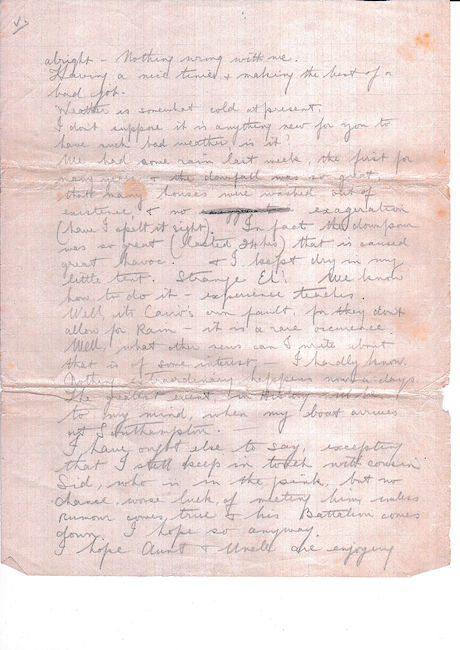 alright – Nothing wrong with me.
Having a nice time, & making the best of a
bad job.
Weather is somewhat cold at present.
I don't suppose it is anything new for you to
have such bad weather is it?
We had some rain last week, the first for
many years & the downfall was so great,
that many houses were washed out of
existence, & no exageration
(have I spelt it right). In fact the downpour
was so great (lasted 24 hrs) that is caused
great havoc. & I kept dry in my
little tent. Strange Eh! We know
how to do it – experience teaches.
Well its Cairo's own fault, for they don't
allow for Rain – it is a rare occurence.
Well, what other news can I write about
that is of some interest – I hardly know.
Nothing extraordinary happens now a days.
The greatest event in History will be
to my mind, when my boat arrives
at Southampton. —
I have ought else to say, excepting
that I still keep in touch with cousin
Sid, who is in the pink, but no
chance, worse luck, of meeting him unless
rumour comes true & his Battalion comes
down. I hope so anyway.
I hope Aunt & Uncle are enjoying